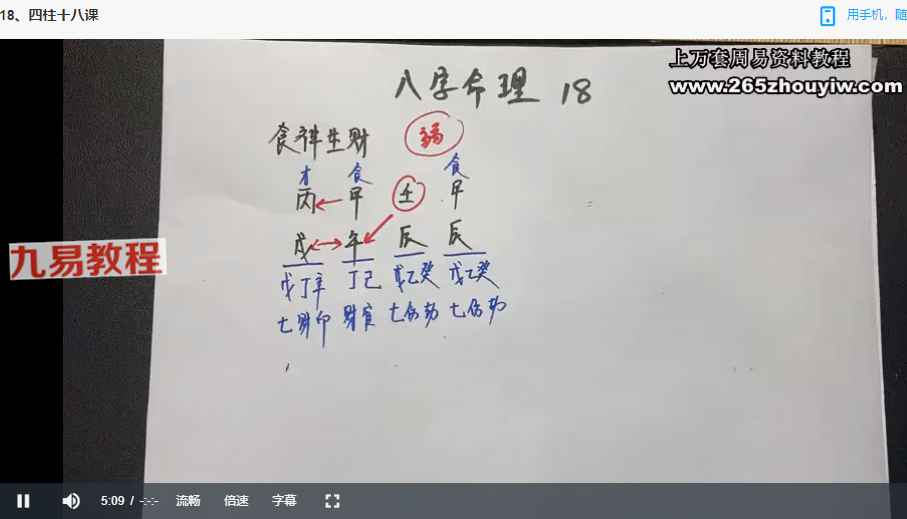 18、四柱十八课
用手机，随
上万套周易资料教程
www.265zhouyiw.com
八字命理 18
食神生财 弱
才 食 食
丙 甲 壬 甲
戌 午 辰 辰
戊丁辛 丁己 戊乙癸 戊乙癸
七财印 财官 七伤劫 七伤劫
九易教程
5:09 / -:-:- 流畅 倍速 字幕